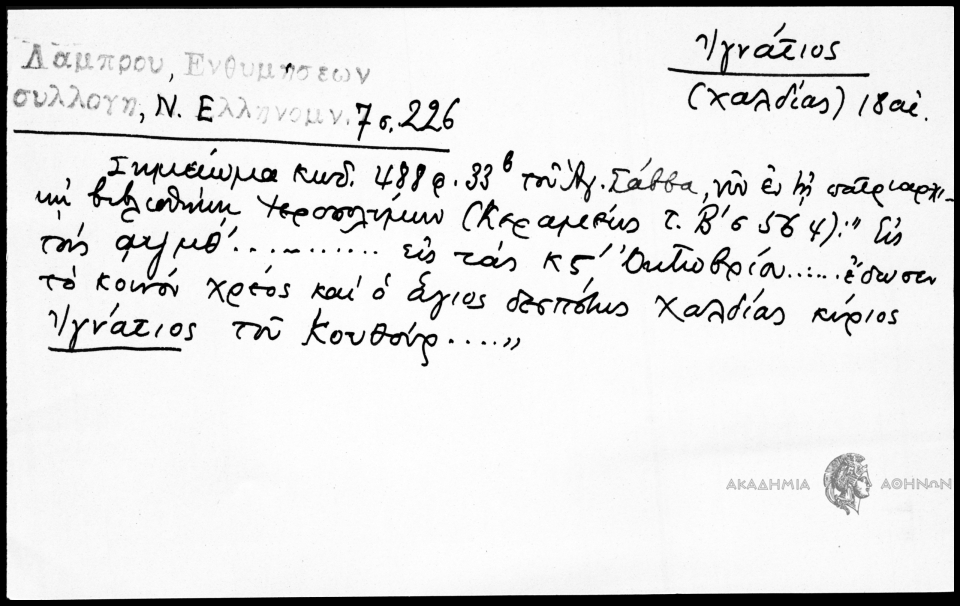 Λάμπρου, Ενθυμήσεων
συλλογη, Ν. Ελληνομν. 7 σ. 226
Ἰγνάτιος
(Χαλδίας) 18 αἰ.
Σημείωμα κωδ. 488 φ. 33 β τοῦ Ἁγ. Σάββα, νῦν ἐν τῇ πατριαρχι-
κῇ βιβλιοθήκῃ Ἱεροσολύμων (Κεραμεύς τ. Β' σ 564): " Εἰς
τούς αψμθ'............ εἰς τάς κς' Ὀκτωβρίου...... ἔδωσεν
τὸ κοινόν χρέος καί ὁ ἅγιος δεσπότης Χαλδίας κύριος
Ἰγνάτιος τοῦ Κουθούρ....,,
ΑΚΑΔΗΜΙΑ ΑΘΗΝΩΝ